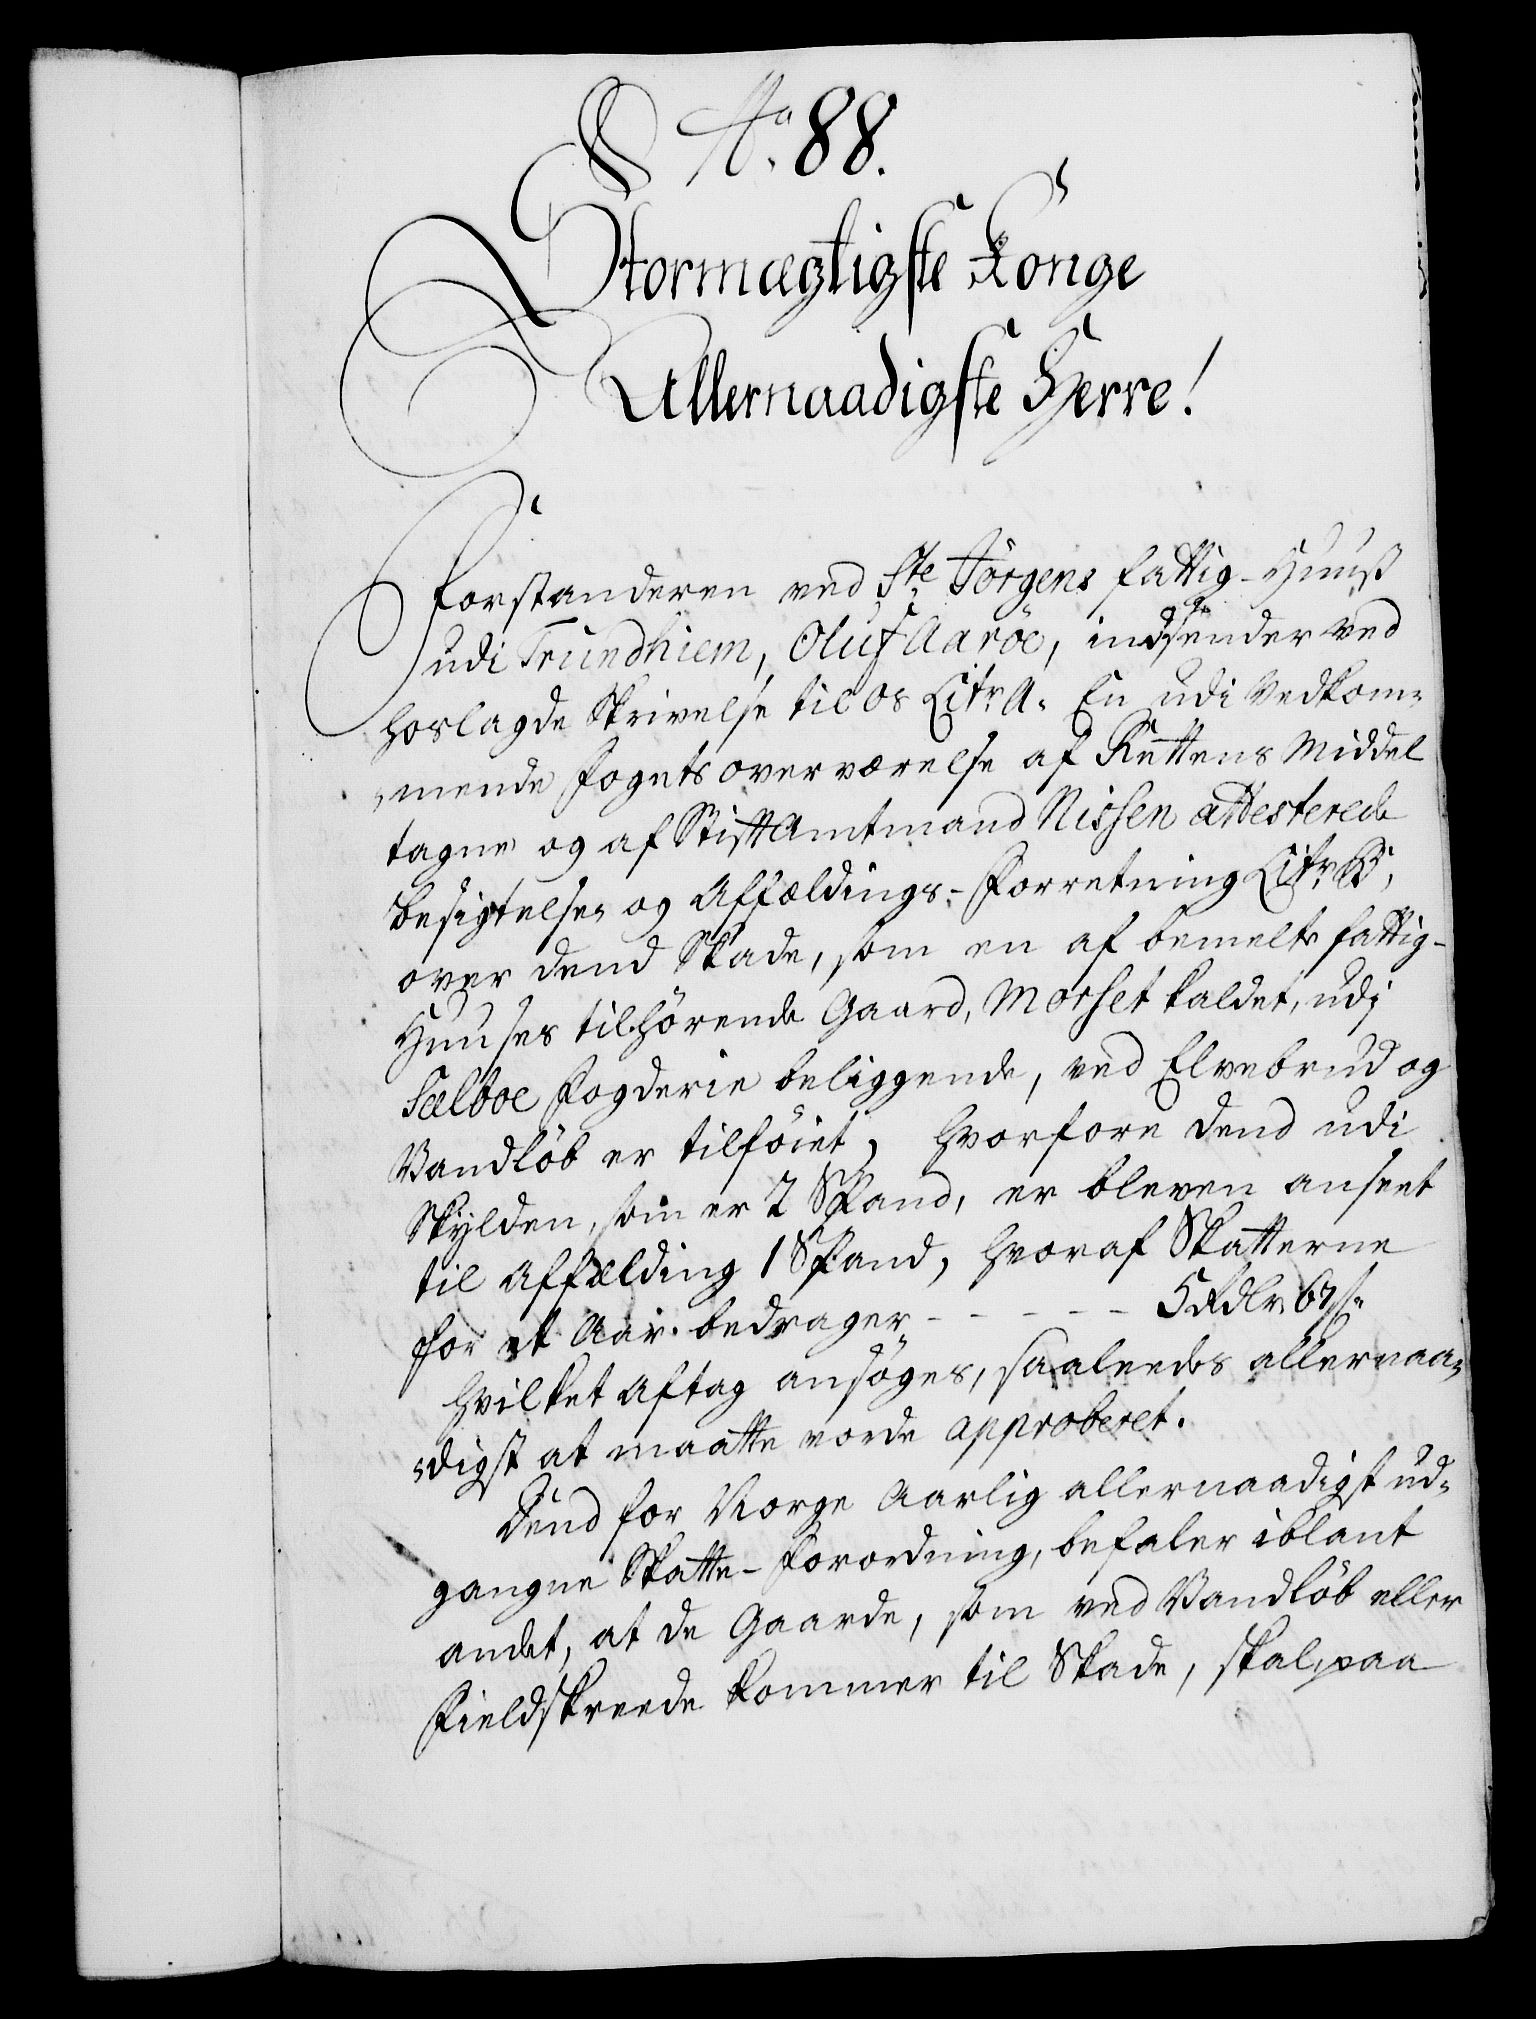 No. 88.
Stormægtigste Konge
Allernaadigste Herre!
Forstanderen ved Ste Jörgens fattig-Huuß
udi Trundhiem, Oluf Aaröe, indsender ved
hoslagde Skrivelse til os Litr. A. En udi Vedkom-
mende Fogets overværelse af Rettens Middel
tagne og af Stiftamtmand Nissen attesterede
besigtelses og Affældings-Forretning Litr. B,
over dend Skade, som en af bemelte fattig-
Huuses tilhörende Gaard, Morset kaldet, udi
Sælboe Fogderie beliggende, ved Elvebrud og
Vandlöb er tilföiet, hvorfore dend udi
Skylden, som er 2 Spand, er bleven anseet
til Affælding 1 Spand, hvoraf Skatterne
for et Aar bedrager - - - - - 5 Rdlr. 67 s.
hvilket Aftag ansöges, saaleedes allernaa-
digst at maatte vorde approberet.
Dend for Norge Aarlig allernaadigst ud-
gangne Skatte-Forordning, befaler iblant
andet, at de Gaarde, som ved Vandlöb eller
Fieldskreede kommer til Skade, skal, paa